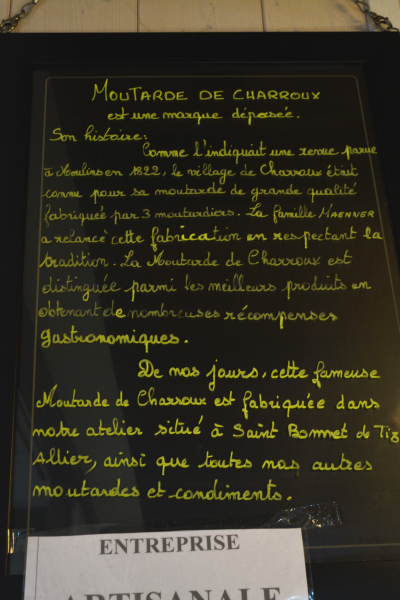 MOUTARDE DE CHARROUX
est une marque déposée.
Son histoire:
Comme l'indiquait une revue parue
à Moulins en 1822, le village de Charroux était
connu pour sa moutarde de grande qualité
fabriquée par 3 moutardiers. La famille MAENNER
a relancé cette fabrication en respectant la
tradition. La Moutarde de Charroux est
distinguée parmi les meilleurs produits en
obtenant de nombreuses récompenses
gastronomiques.
De nos jours, cette fameuse
Moutarde de Charroux est fabriquée dans
notre atelier situé à Saint Bonnet de Tiz
Allier, ainsi que toutes nos autres
moutardes et condiments.
ENTREPRISE
ARTISANALE